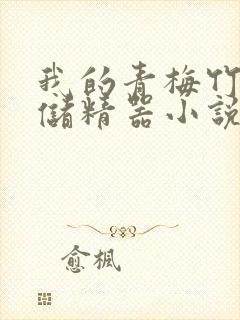 我的青梅竹
儲精器小說
愈楓